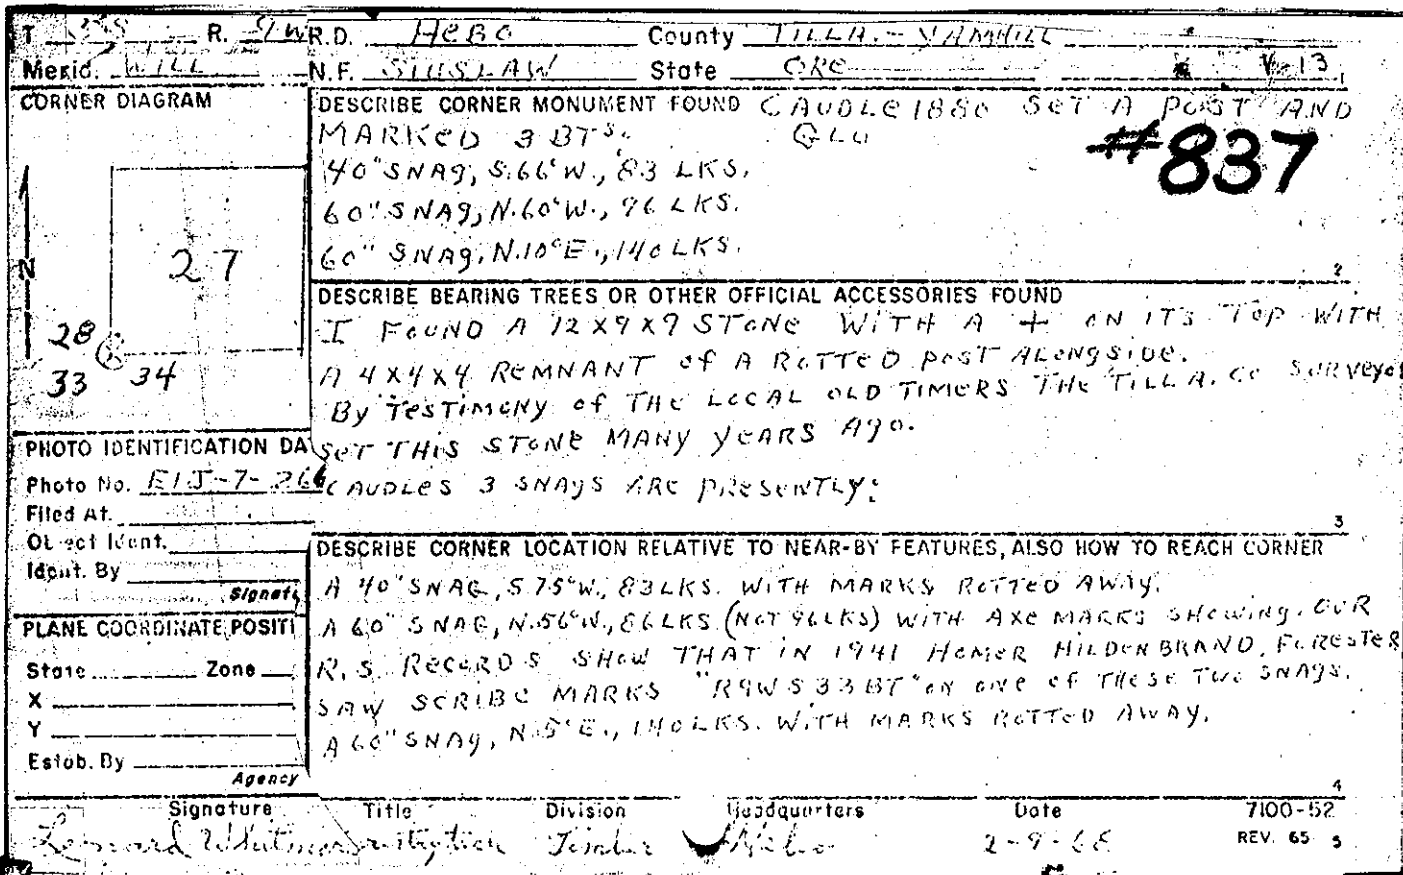 T 3S R. 9W R.D. HeBO County TILLA.-YAMHILL
Merid. WILL N.F. SIUSLAW State ORE V-13
CORNER DIAGRAM
N
27
28
33 34
DESCRIBE CORNER MONUMENT FOUND CAUDLE 1880 SET A POST AND
MARKED 3 BTS. GLO
#837
40" SNAg, S.66°W., 83 LKS.
60" SNAg, N.60°W., 96 LKS.
60" SNAg, N.10°E., 140 LKS.
2
DESCRIBE BEARING TREES OR OTHER OFFICIAL ACCESSORIES FOUND
I FOUND A 12X9X9 STONE WITH A + ON ITS TOP WITH
A 4X4X4 REMNANT of A ROTTED POST ALONGSIDE.
By TESTIMONY of THE LOCAL OLD TIMERS THE TILLA. CO SURVEYOR
SET THIS STONE MANY YEARS AgO.
CAUDLES 3 SNAgS ARE PRESENTLY:
3
PHOTO IDENTIFICATION DA
Photo No. EIJ-7-266
Filed At.
Object Ident.
Ident. By
Signatu
PLANE COORDINATE POSITI
State Zone
X
Y
Estab. By
Agency
DESCRIBE CORNER LOCATION RELATIVE TO NEAR-BY FEATURES, ALSO HOW TO REACH CORNER
A 40" SNAG, S75°W., 83LKS. WITH MARKS ROTTED AWAY.
A 60" SNAG, N.56°W., 86LKS (NOT 96LKS) WITH AXE MARKS SHOWING. OUR
R.S. RECORDS SHOW THAT IN 1941 HOMER HILDENBRAND, FORESTER
SAW SCRIBE MARKS "R9WS33BT" ON ONE OF THESE TWO SNAGS.
A 60" SNAg, N.5°E., 140LKS. WITH MARKS ROTTED AWAY.
4
Signature Title Division Headquarters Date 7100-52
Leonard Whitmore Timber Hebo 2-9-68 REV. 65 5